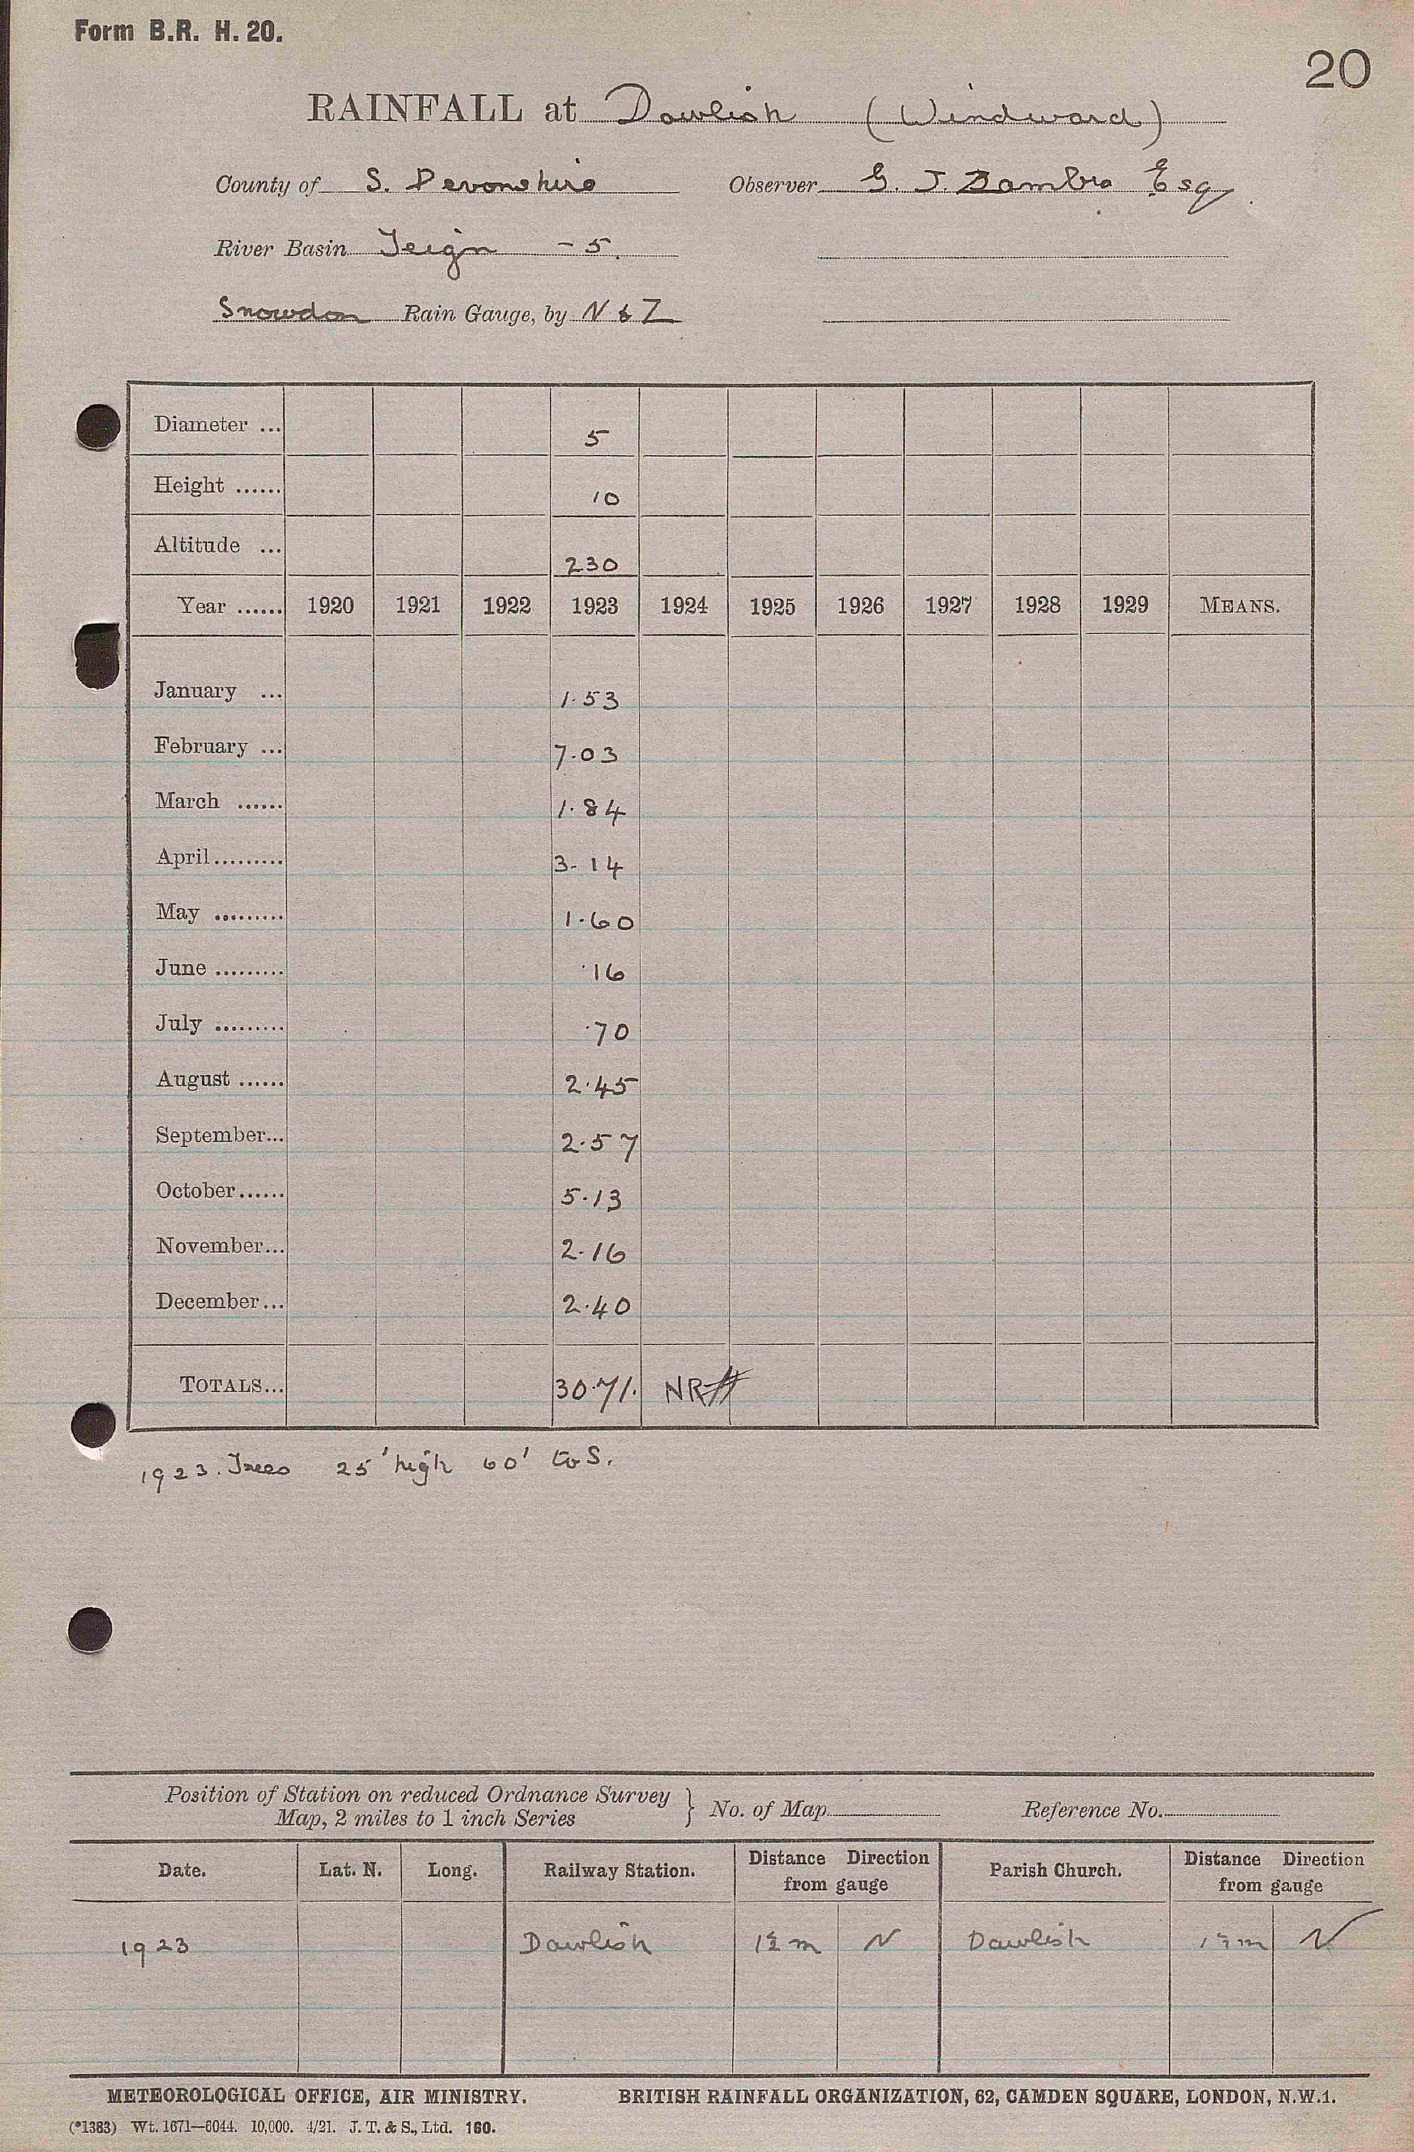 Form B.R. H. 20.
20
RAINFALL at Dawlish (Windward)
County of S. Devonshire Observer G. J. Zambra Esq.
River Basin Teign - 5.
Snowdon Rain Gauge, by N & Z
Diameter ... 5
Height ...... 10
Altitude ... 230
Year ...... 1920 1921 1922 1923 1924 1925 1926 1927 1928 1929 MEANS.
January ... 1.53
February ... 7.03
March ...... 1.84
April ......... 3.14
May ......... 1.60
June ......... .16
July ......... .70
August ...... 2.45
September... 2.57
October...... 5.13
November... 2.16
December... 2.40
TOTALS... 30.71. NR
1923. Trees 25' high 60' to S.
Position of Station on reduced Ordnance Survey
Map, 2 miles to 1 inch Series } No. of Map Reference No.
Date. Lat. N. Long. Railway Station. Distance Direction from gauge Parish Church. Distance Direction from gauge
1923 Dawlish 1½ m N Dawlish 1½ m N
METEOROLOGICAL OFFICE, AIR MINISTRY. BRITISH RAINFALL ORGANIZATION, 62, CAMDEN SQUARE, LONDON, N.W.1.
(*1383) Wt. 1671—6044. 10,000. 4/21. J. T. & S., Ltd. 160.